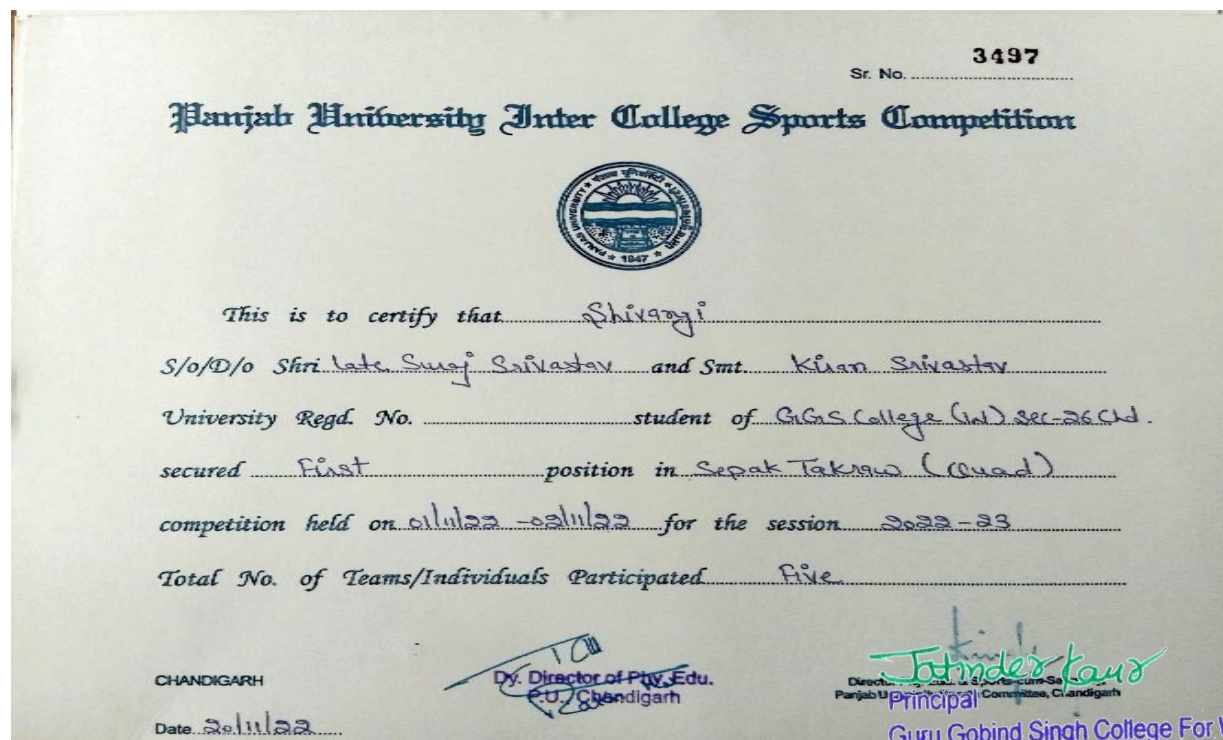 Sr. No. 3497
Panjab University Inter College Sports Competition
PANJAB UNIVERSITY
1947
This is to certify that Shivangi
S/o/D/o Shri late Suraj Srivastav and Smt. Kiran Srivastav
University Regd. No. student of GGS College (W) Sec-26 Chd.
secured First position in Sepak Takraw (Quad)
competition held on 01/11/22 - 02/11/22 for the session 2022-23
Total No. of Teams/Individuals Participated Five
Jatinder Kaur
CHANDIGARH
Dy. Director of Phy. Edu.
P.U., Chandigarh
Panjab Committee, Chandigarh
Principal
Date 20/11/22
Guru Gobind Singh College For